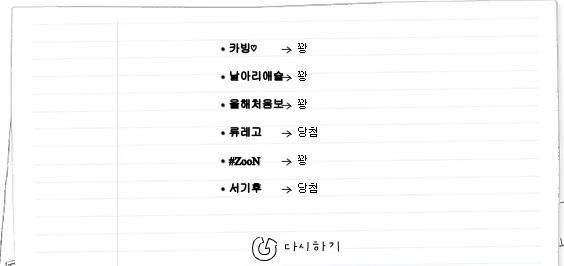 • 카빙♡ → 꽝
• 날아리애슬→ 꽝
• 올해처음보→ 꽝
• 류레고 → 당첨
• #ZooN → 꽝
• 서기후 → 당첨
다시하기